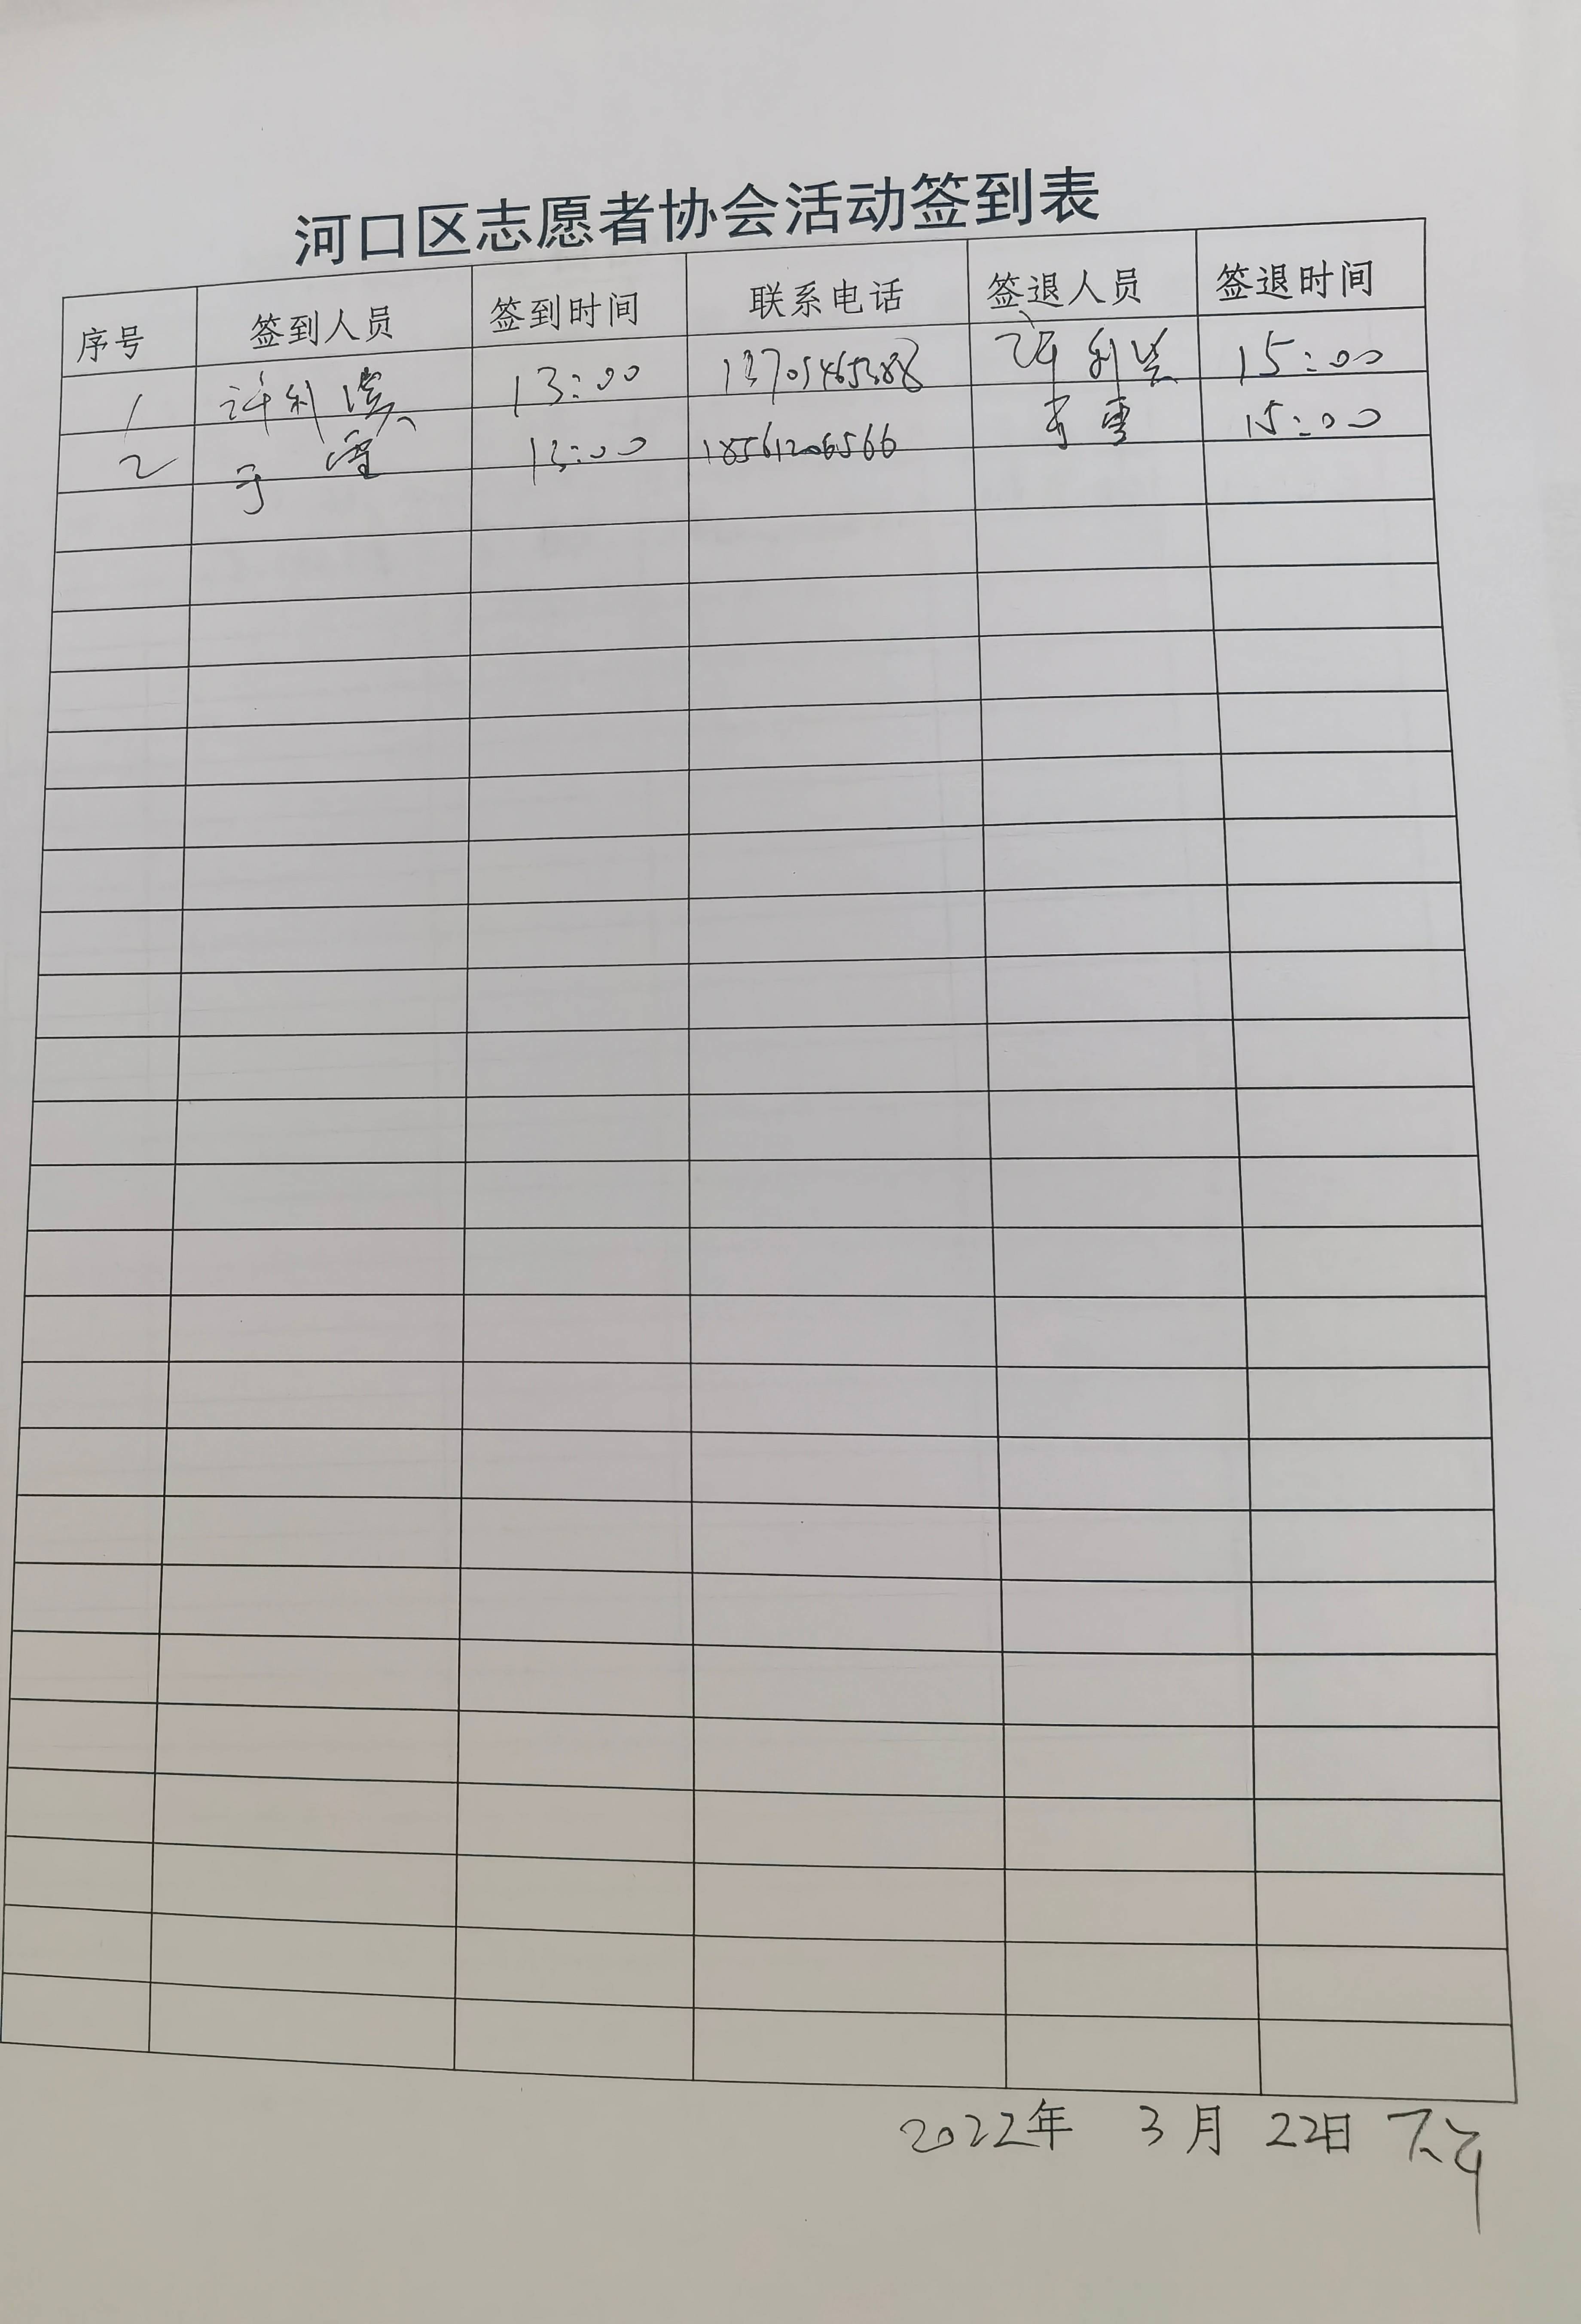 河口区志愿者协会活动签到表
序号 签到人员 签到时间 联系电话 签退人员 签退时间
1 许利 13:00 许利 15:00
2 于雪 13:00 18561206566 于雪 15:00
2022年 3月 22日 下午